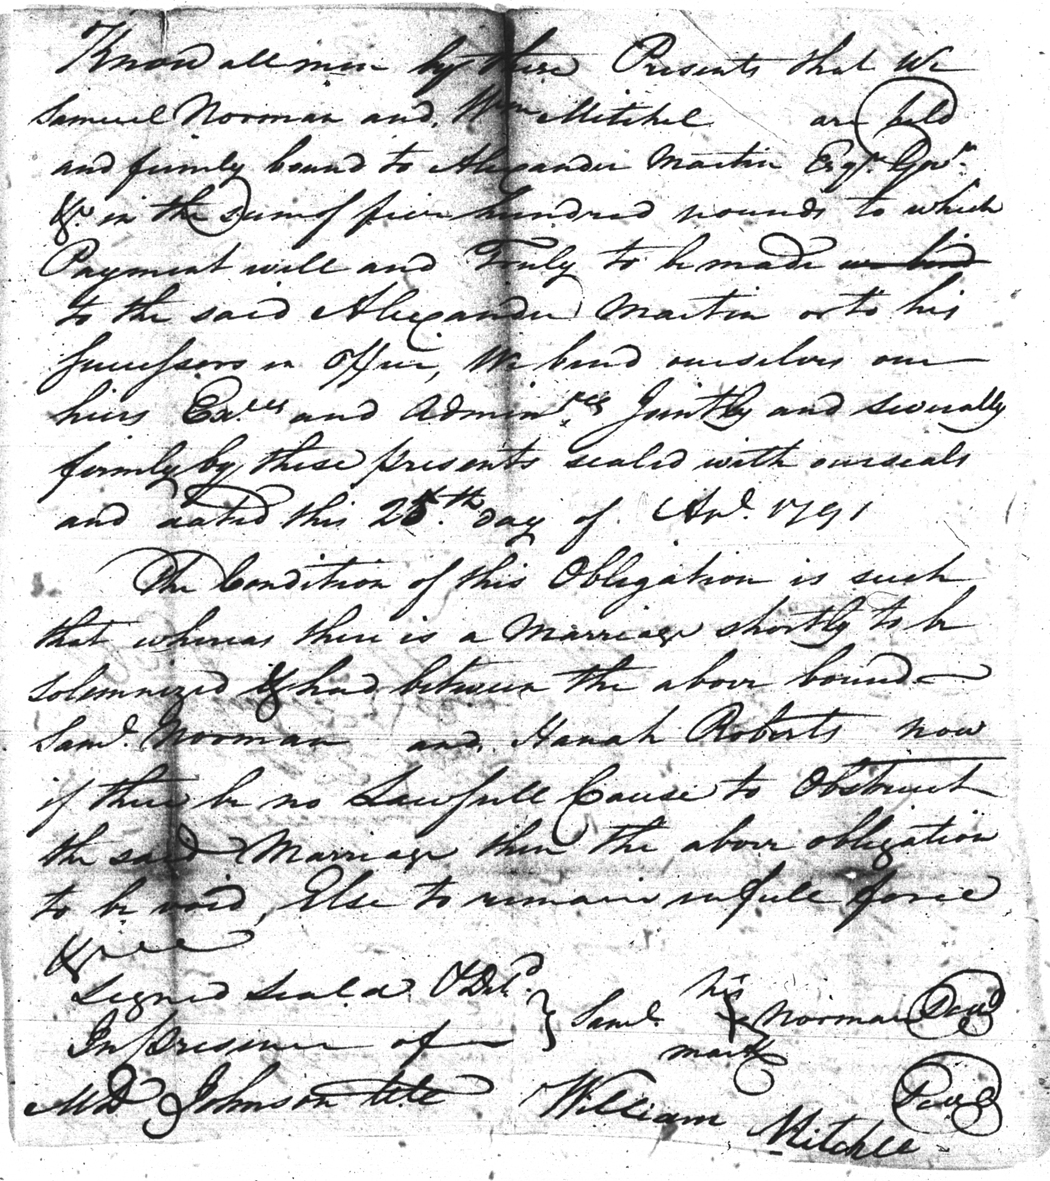 Know all men by these Presents that We
Samuel Norman and Wm Mitchel are held
and firmly bound to Alexander Martin Esqr. Govr.
&c. in the Sum of five hundred pounds to which
Payment will and Truly to be made we bind
to the said Alexander Martin or to his
Successors in Office, We bind ourselves our
heirs Exces and Adminres Jointly and severally
firmly by these presents sealed with our seals
and dated this 25th day of Apl. 1791
The Condition of this Obligation is such
that whereas there is a Marriage shortly to be
solemnized & had between the above bound
Saml. Norman and Hanah Roberts now
if there be no Lawfull Cause to Obstruct
the said Marriage then the above obligation
to be void, Else to remain in full force
&c
Signed Seald & Deld.
In presence of
Saml. his mark Norman
MD Johnson
William Mitchel